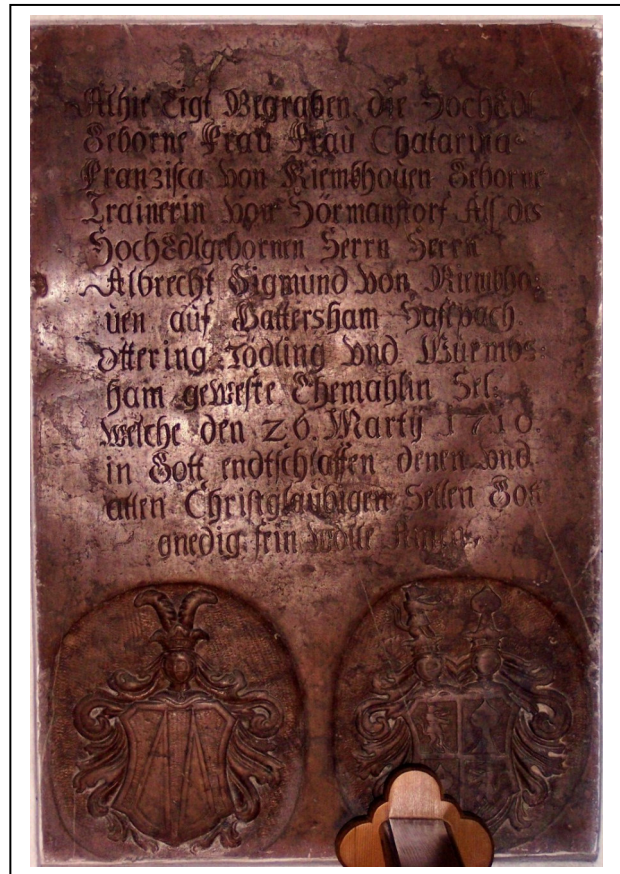 Alhie Ligt Begraben die HochEdl
Geborne Frau Frau Chatarina
Franzisca von Riembhouen Geborne
Trainerin von Hörmanstorf Als des
HochEdlgebornen Herrn Herrn
Albrecht Sigmund von Riembho
uen auf Hattersham
Ottering Tödling Vnd
ham geweste Ehemahlin Sel.
welche den 26. Martij 1710.
in Gott endtschlaffen denen vnd
allen Christglaubigen Sellen Got
gnedig sein wolle Amen.